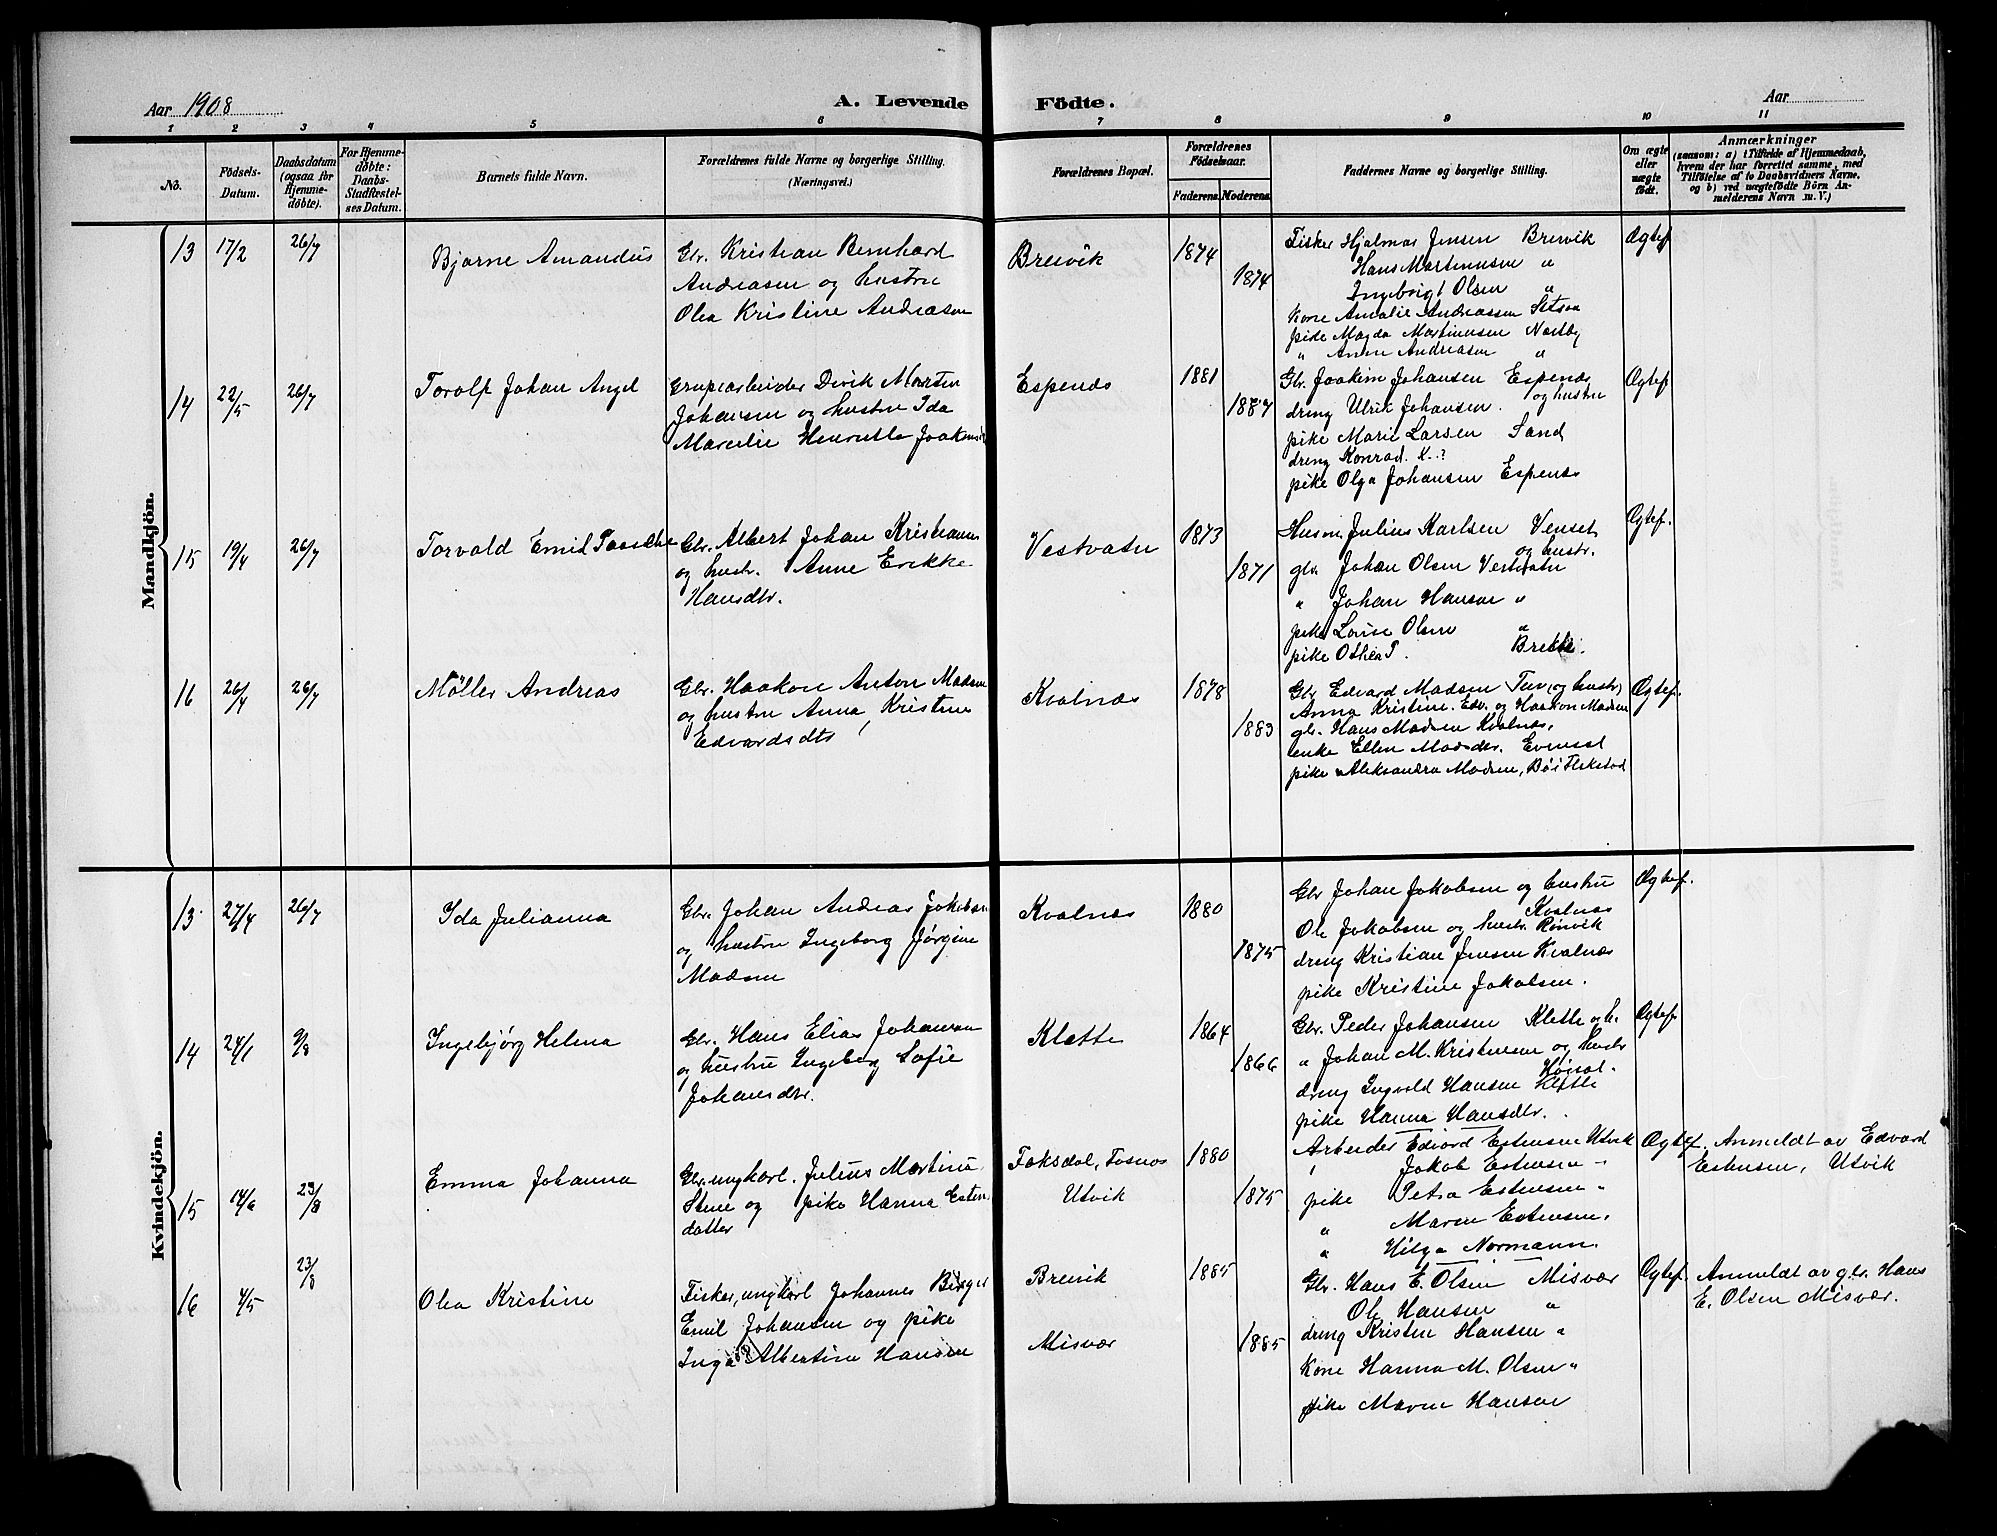 Aar 1908
A. Levende Födte.
Aar
1 2 3 4 5 6 7 8 9 10 11
No.
Födsels-Datum.
Daabsdatum (ogsaa for Hjemmedöbte).
For Hjemmedöbte: Daabs-Stadfæstelses Datum.
Barnets fulde Navn.
Forældrenes fulde Navne og borgerlige Stilling. (Næringsvei.)
Forældrenes Bopæl.
Forældrenes Födselsaar.
Faderens. Moderens.
Faddernes Navne og borgerlige Stilling.
Om ægte eller uægte födt.
Anmærkninger
(saasom: a) i Tilfælde af Hjemmedaab,
hvem der har forrettet samme, med
Tilföielse af to Daabsvidners Navne,
og b) ved uægtefödte Börn An-
melderens Navn m. V.)
Mandkjön.
13 17/2 26/7 Bjarne Amandus
Gbr. Kristian Bernhard
Andreasen og hustru
Olea Kristine Andreasen
Breivik 1874 1874
Fisker Hjalmar Jensen Breivik
Hans Martinussen "
Ingebrigt Olsen "
Kone Amalie Andreassen
pike Magda Martinussen
" Anne Andreasen "
Ægtef
14 22/5 26/7 Torolf Johan Angel
Grupearbeider Divik Morten
Johansen og hustru Ida
Marcelie Henrette
Espenes 1881 1887
Gbr. Joakim Johansen Espenes
og hustru
dreng Ulrik Johansen.
pike Marie Larsen Sand
dreng Konrad. K..?
pike Olga Johansen Espenes
Ægtef
15 19/4 26/7 Torvald Emil Paasche
Gbr. Albert Johan
og hustr. Anne Erikke
Hansdtr.
Vestvatn 1873 1871
Husm. Julius Karlsen Venset
og hustr.
gbr Johan Olsen Vestvatn
" Johan Hansen "
pike Louise Olsen "
pike Othea P. Brekke.
Ægtef.
16 26/4 26/7 Möller Andreas
Gbr. Haakon Anton Madsen
og hustru Anna Kristine
Edvardsdtr
Kvalnæs 1878 1883
Gbr Edvard Madsen Tuv (og hustr)
Anna Kristine. Edv. og Haakon Madsen
gbr. Hans Madsen Kvalnæs,
enke Ellen Madsdtr. Evenset
pike Aleksandra Madsen,
Ægtef.
Kvindekjön.
13. 27/4 26/7 Ida Julianna
Gbr. Johan Andreas Jakobsen
og hustru Ingeborg Jørgine
Madsen
Kvalnæs 1880 1875
Gbr Johan Jakobsen og hustru
Kvalnæs
Ole Jakobsen og hustr. Rønvik
dreng Kristian Jensen Kvalnæs
pike Kristine Jakobsen.
Ægtef.
14 24/1 9/8 Ingebjörg Helena
Gbr. Hans Elias Johansen
og hustru Ingeborg Sofie
Johansdtr.
Klette 1864 1866
Gbr. Peder Johansen Klette og h.
" Johan M. Kristensen og hustr
dreng Ingvald Hansen Klette
pike Hanna Hansdtr.
Ægtef.
15 14/6 23/8 Emma Johanna
Gbr. ungkarl. Julius Martinus
Stene og pike Hanna Esten
datter
Faksdal, Fosnes
Utvik
1880 1875
Arbeider Edvard Estensen Utvik
Jakob Estensen "
pike Petra Estensen "
" Maren Estensen.
" Helga Normann.
Ægtef. Anmeldt av Edvard
Estensen, Utvik
16 4/5 23/8 Olea Kristine
Fisker, ungkarl Johannes Birger
Emil Johansen og pike
Inga Albertine Hansen
Breivik
Misvær
1885 1885
Gbr. Hans E. Olsen Misvær
Ole Hansen "
dreng Kristen Hansen "
Kone Hanna M. Olsen "
pike Maren Hansen
Ægtef. Anmeldt av gbr. Hans
E. Olsen Misvær.